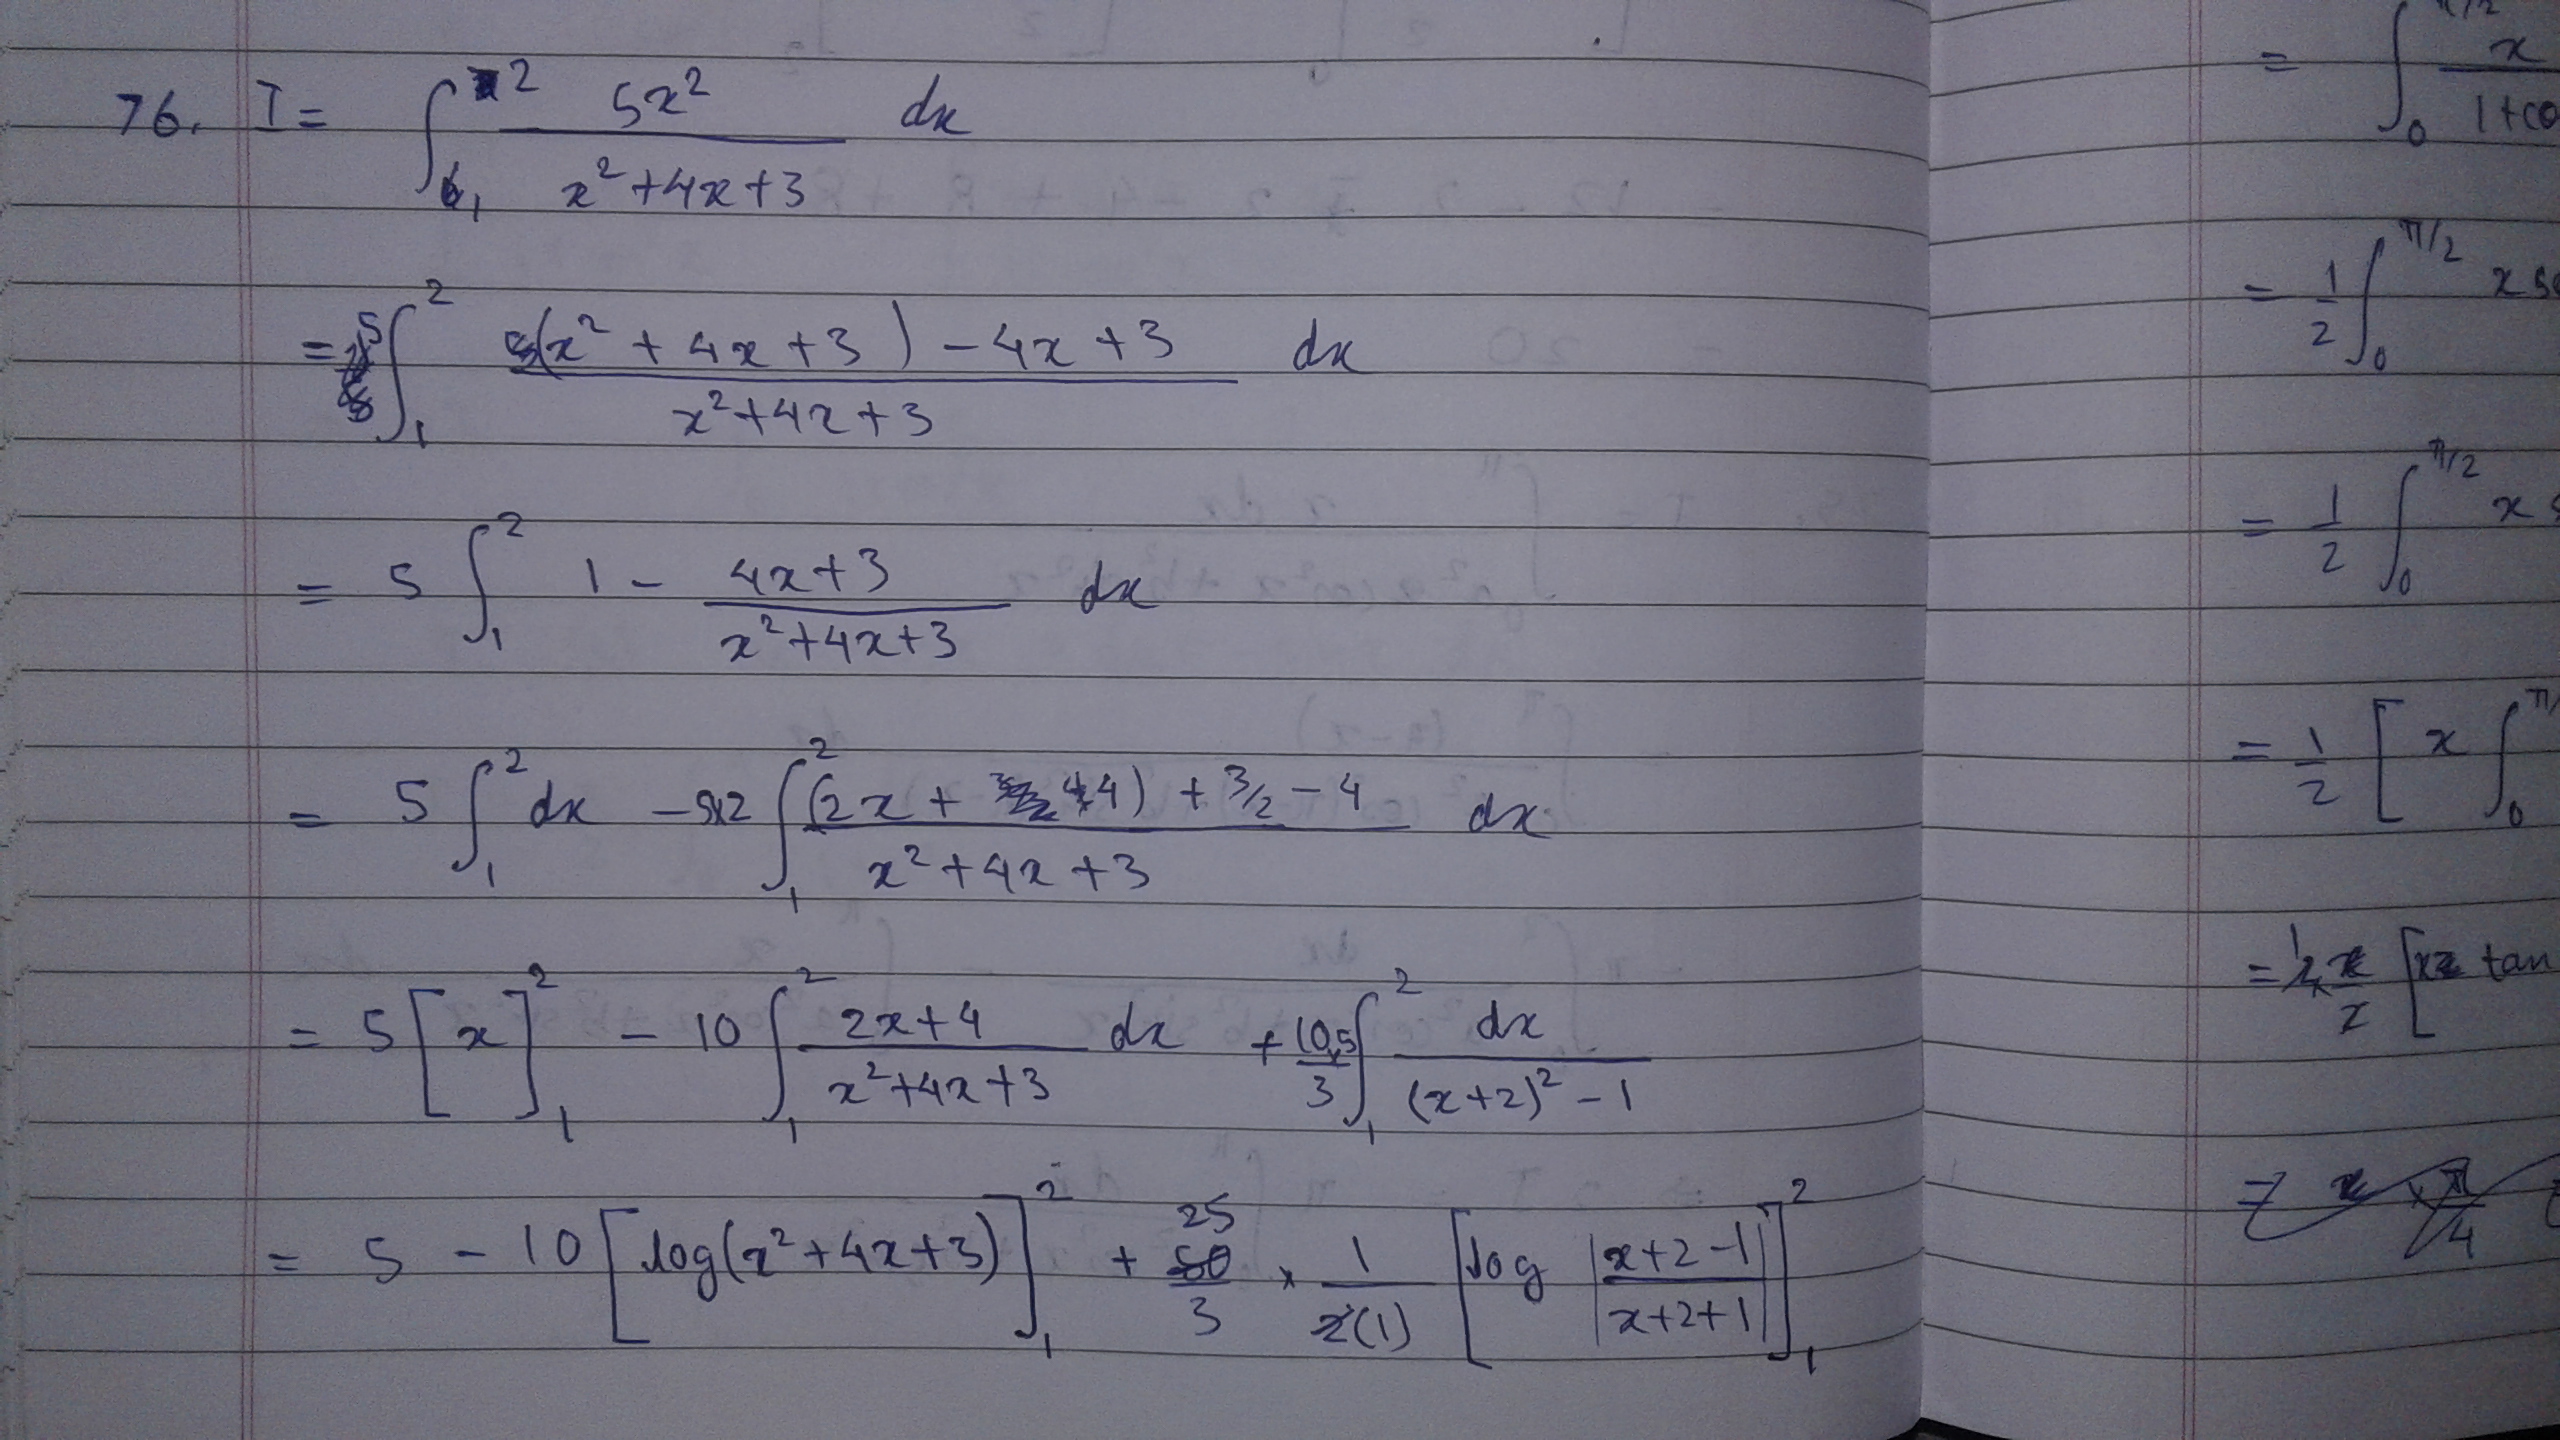 76. I = ∫₁² 5x² / (x²+4x+3) dx
= 5 ∫₁² ((x² + 4x + 3) − 4x + 3) / (x²+4x+3) dx
= 5 ∫₁² 1 − (4x+3) / (x²+4x+3) dx
= 5 ∫₁² dx − 5x2 ∫₁² ((2x + 4) + 3/2 − 4) / (x²+4x+3) dx
= 5 [x]₁² − 10 ∫₁² (2x+4) / (x²+4x+3) dx + (10x5)/3 ∫₁² dx / ((x+2)² − 1)
= 5 − 10 [log(x²+4x+3)]₁² + 25/3 × 1/(2(1)) [log |(x+2−1)/(x+2+1)|]₁²
= ∫₀^π/2 x / 1+co
= 1/2 ∫₀^π/2 x se
= 1/2 ∫₀^π/2 x s
= 1/2 [x ∫₀
tan